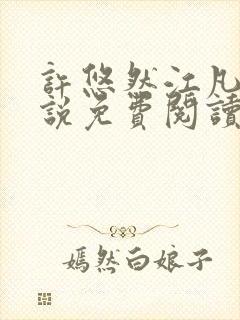 許悠然江凡
說免費閱讀
嫣然白娘子